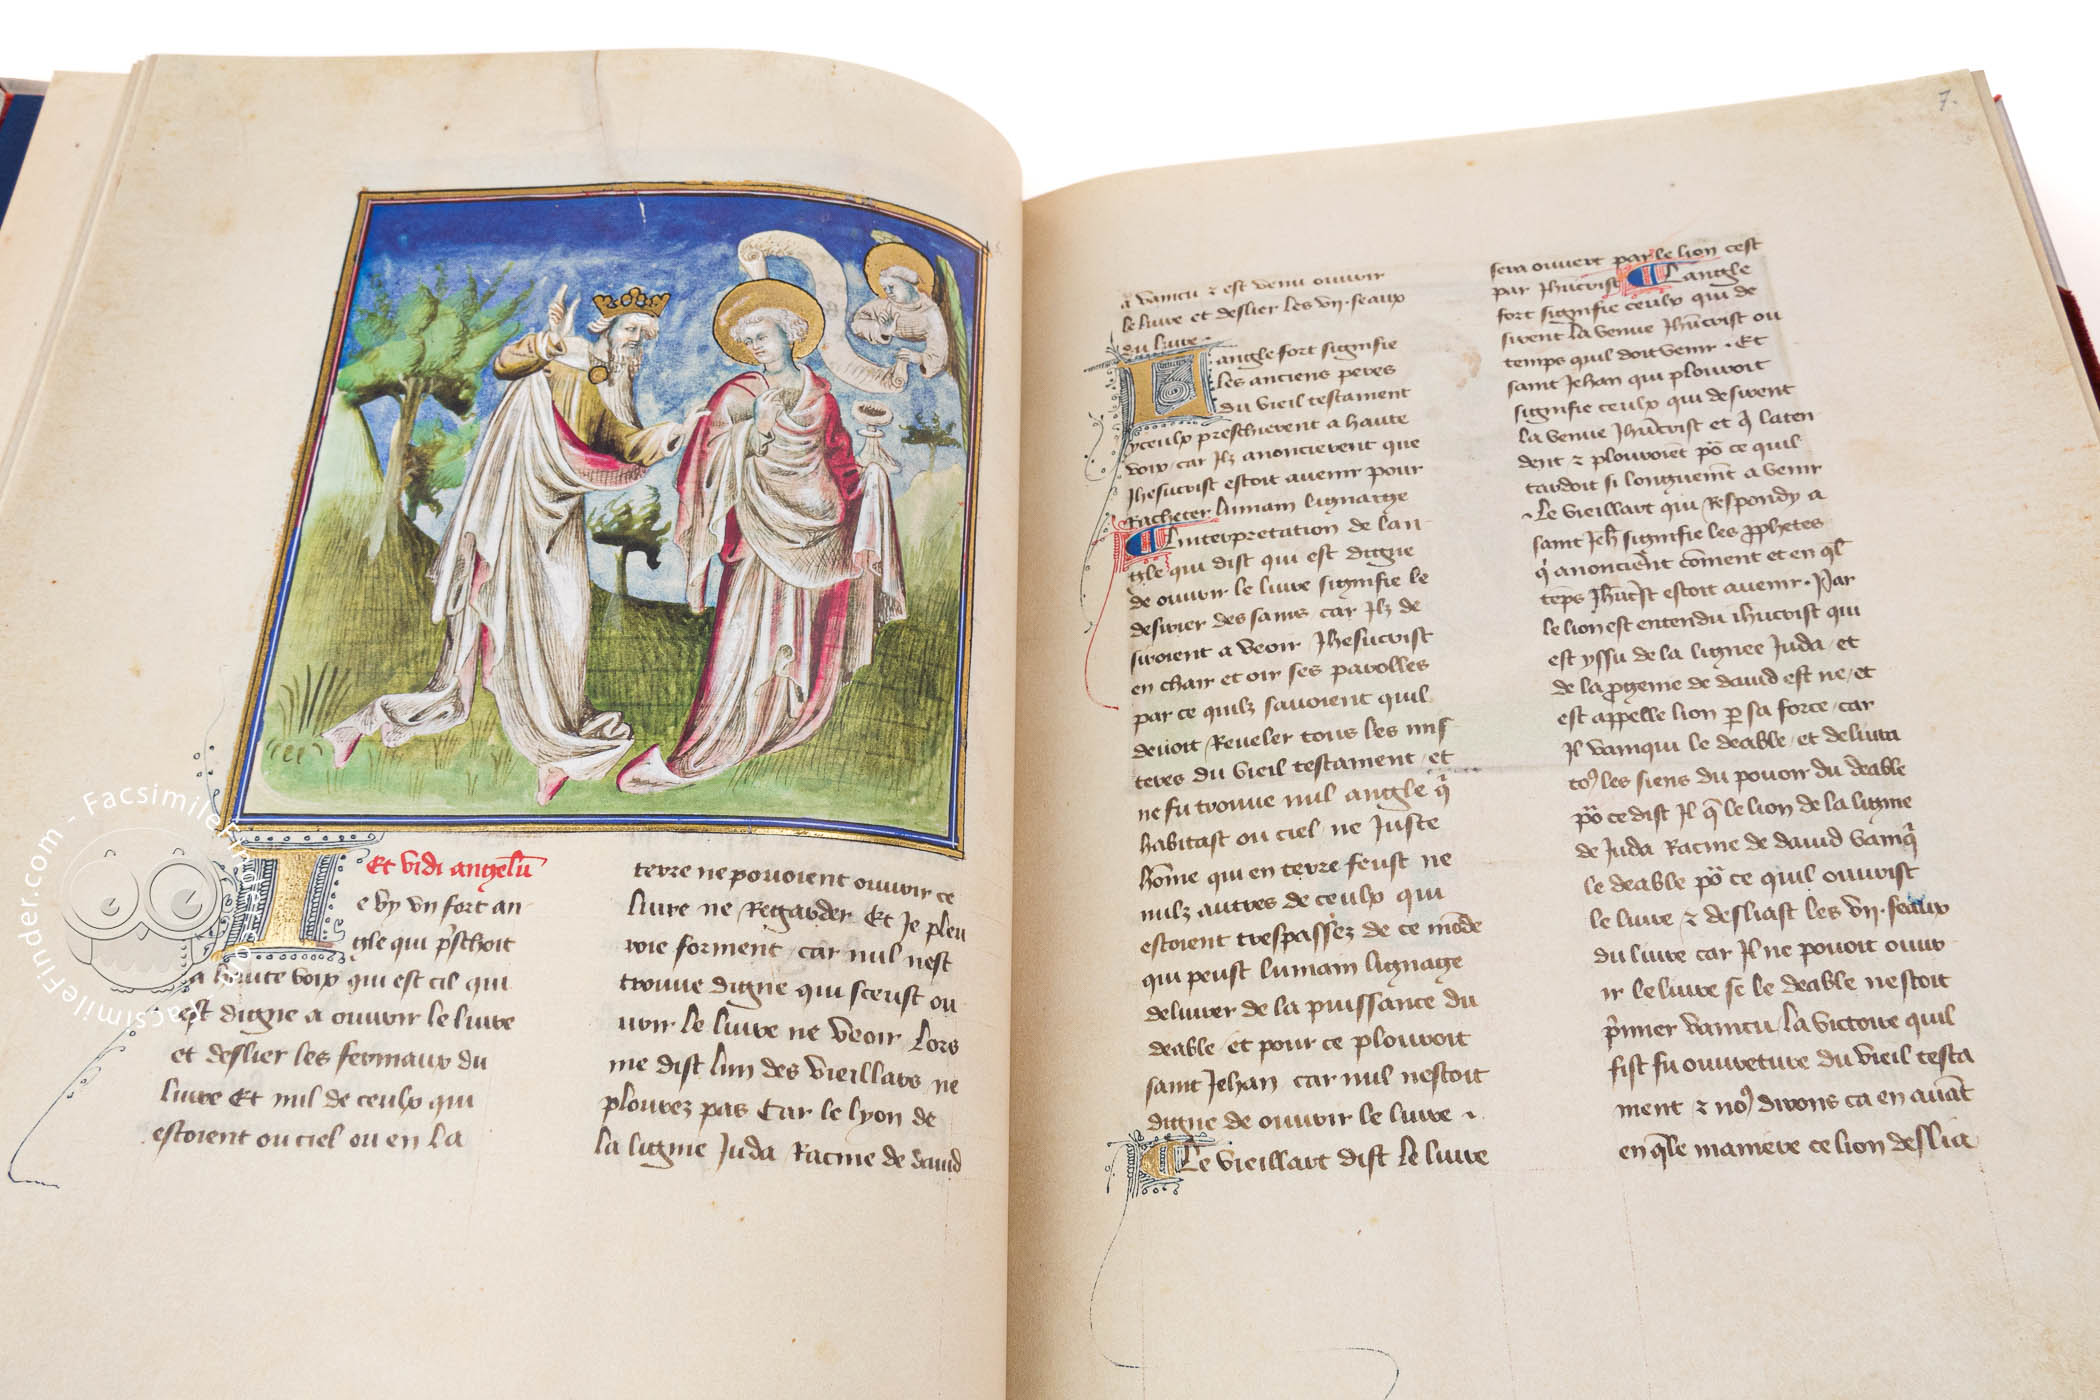 Et vidi angelu̅
Ie vy vn fort an
gle qui p̅schoit
a haute voix qui est cil qui
est digne a ouurir le liure
et deslier les fermaux du
liure Et nul de ceulx qui
estoient ou ciel ou en la
terre ne pouoient ouurir ce
liure ne Regarder Et Je pleu
roie forment car nul nest
trouue digne qui sceust ou
urir le liure ne veoir Lors
me dist lun des vieillars ne
plourez pas Car le lyon de
la lignie Juda Racine de dauid
7.
a vaincu ⁊ est venu ouurir
le liure et deslier les vij. seaux
du liure.
Langle fort signifie
les anciens peres
du vieil testament
yceulx preschierent a haute
voix car Ilz anoncierent que
Jhesucrist estoit auenir pour
Racheter lumain lignaige
¶ Linterpretation de lan
gle qui dist qui est digne
de ouurir le liure signifie le
desirier des sains car Ilz de
siroient a veoir Jhesucrist
en chair et oir ses parolles
par ce quilz sauoient quil
deuoit Reueler tous les mis
teres du vieil testament et
ne fu trouue nul angle q̅
habitast ou ciel ne Juste
ho̅me qui en terre feust ne
nulz autres de ceulx qui
estoient trespassez de ce mo̅de
qui peust lumain lignage
deliurer de la puissance du
deable et pour ce plouroit
saint Jehan car nul nestoit
digne de ouurir le liure
¶ Le vieillart dist le liure
sera ouuert par le lion cest
par Jhucrist ¶ Langle
fort signifie ceulx qui de
sirent la venue Jhu̅crist ou
temps quil doit venir. Et
saint Jehan qui plouroit
signifie ceulx qui desirent
la venue Jhu̅crist et q̅ laten
dent ⁊ plouroie̅t po̅ ce quil
tardoit si longueme̅t a venir
Le vieillart qui Respondy a
saint Jeh̅ signifie les p̅phetes
q̅ anoncie̅t co̅ment et en q̅l
te̅ps Jhu̅c̅st estoit auenir. Par
le lion est entendu ihucrist qui
est yssu de la lignee Juda et
de la p̅genie de dauid est ne et
est appelle lion p̲ sa force car
Il vainqui le deable et deliura
toꝰ les siens du pouoir du deable
po̅ ce dist Il q̅ le lion de la lignie
de Juda Racine de dauid vainq̅
le deable po̅ ce quil ouurist
le liure ⁊ desliast les vij. seaux
du liure car Il ne pouoit ouur
ir le liure se le deable nestoit
p̅mier vaincu La victoire quil
fist fu ouuerture du vieil testa
ment ⁊ noꝰ dirons ca en aua̅t
en q̅le maniere ce lion deslia
FacsimileFinder.com - FacsimileFinder.com - FacsimileFinder.com